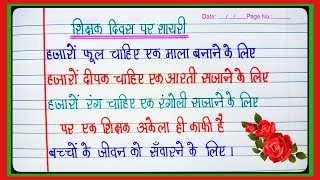 Date: __/__/__ Page No.: ____
शिक्षक दिवस पर शायरी
हजारों फूल चाहिए एक माला बनाने के लिए
हजारों दीपक चाहिए एक आरती सजाने के लिए
हजारों रंग चाहिए एक रंगोली सजाने के लिए
पर एक शिक्षक अकेला ही काफी है
बच्चों के जीवन को सँवारने के लिए।